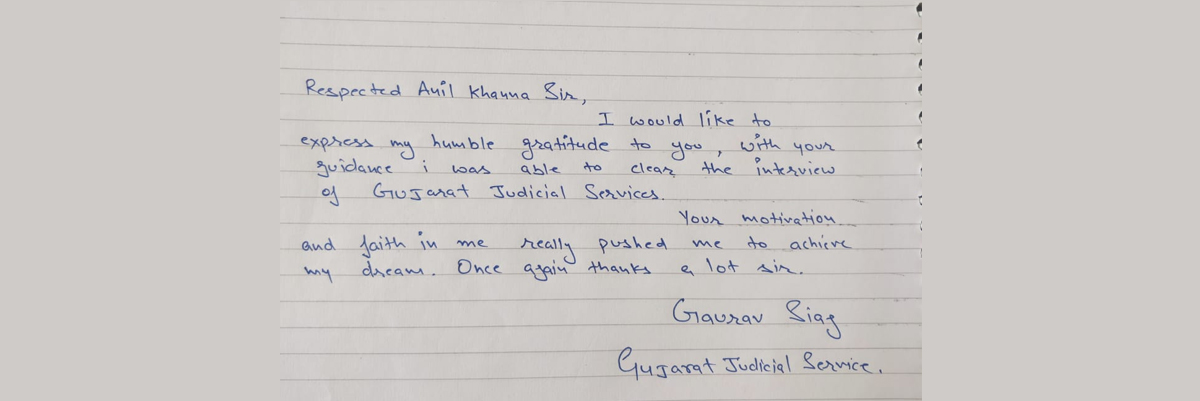 Respected Anil Khanna Sir,
I would like to
express my humble gratitude to you, with your
guidance i was able to clear the interview
of Gujarat Judicial Services.
Your motivation
and faith in me really pushed me to achieve
my dream. Once again thanks a lot sir.
Gaurav Siag
Gujarat Judicial Service.